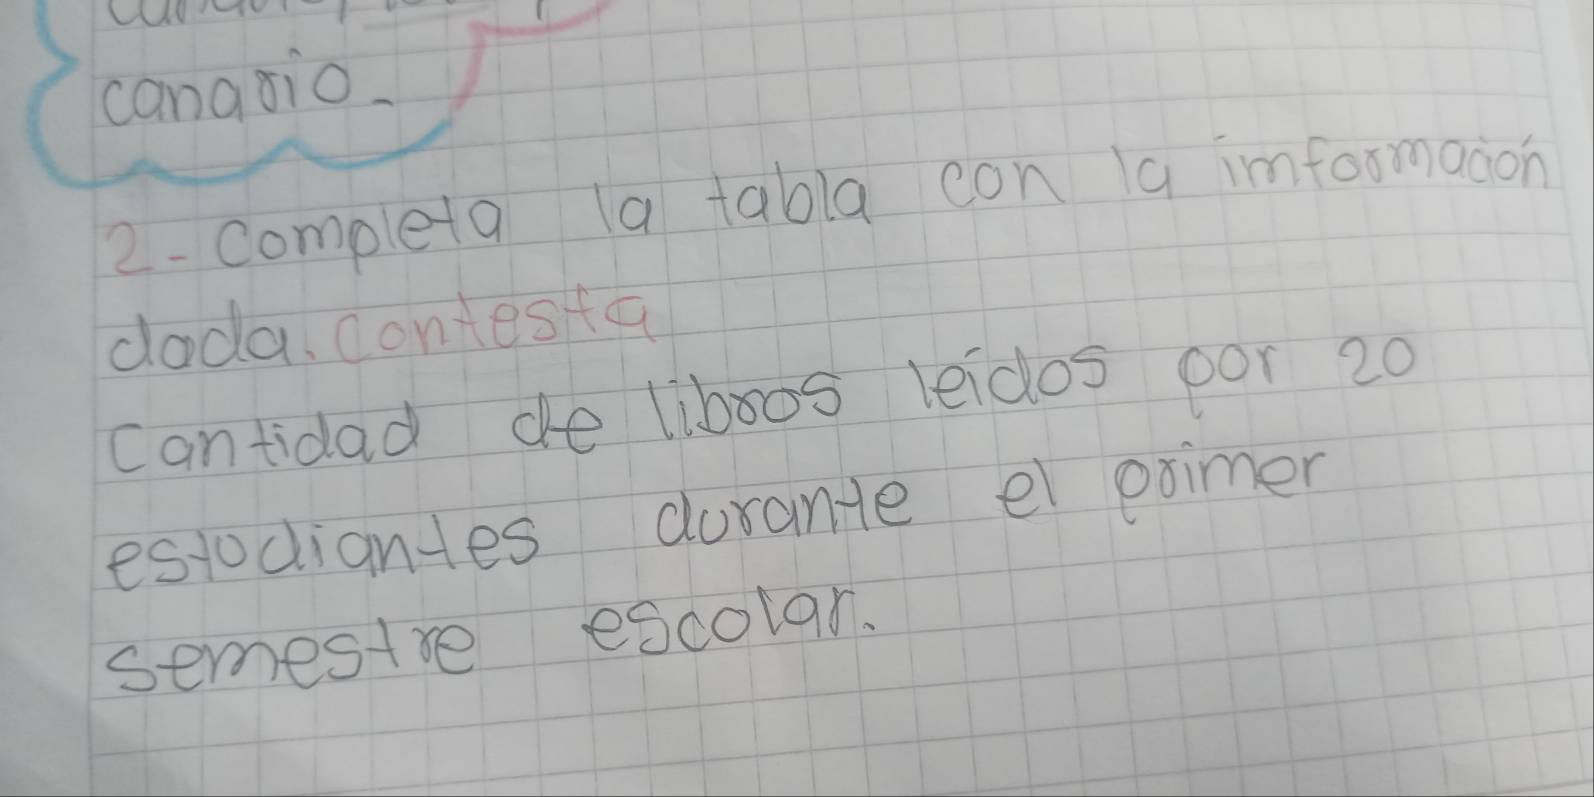 canario.
2- completa la tabla con la imformación
dada. contesta
cantidad de libros leídos por 20
estodiantes durante el primer
semestre escolar.